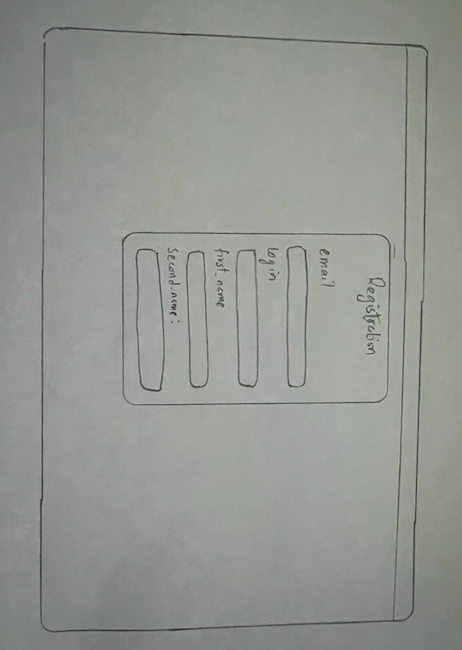 Registration
email
login
first_name
second_name: